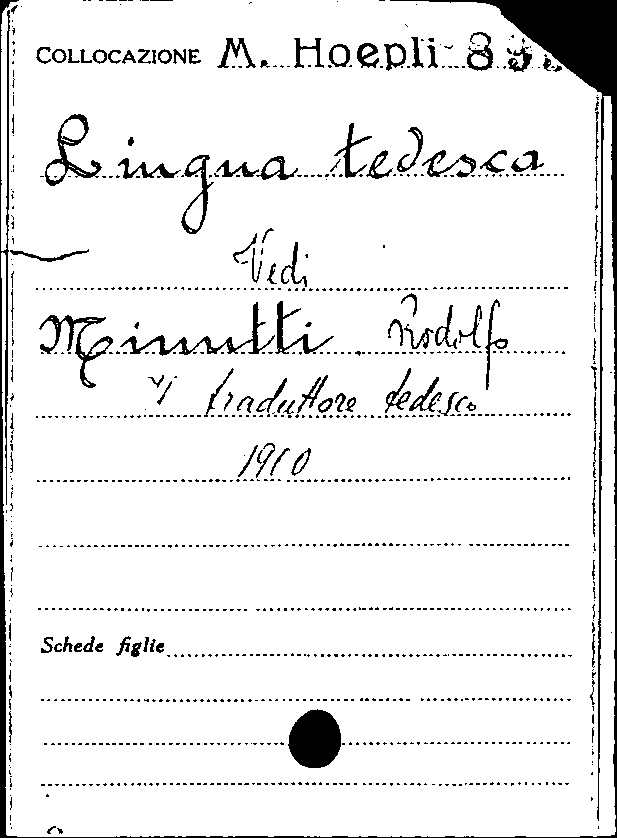 COLLOCAZIONE M. Hoepli 8
Lingua tedesca
Vedi
Minutti Rodolfo
Il traduttore tedesco
1910
Schede figlie